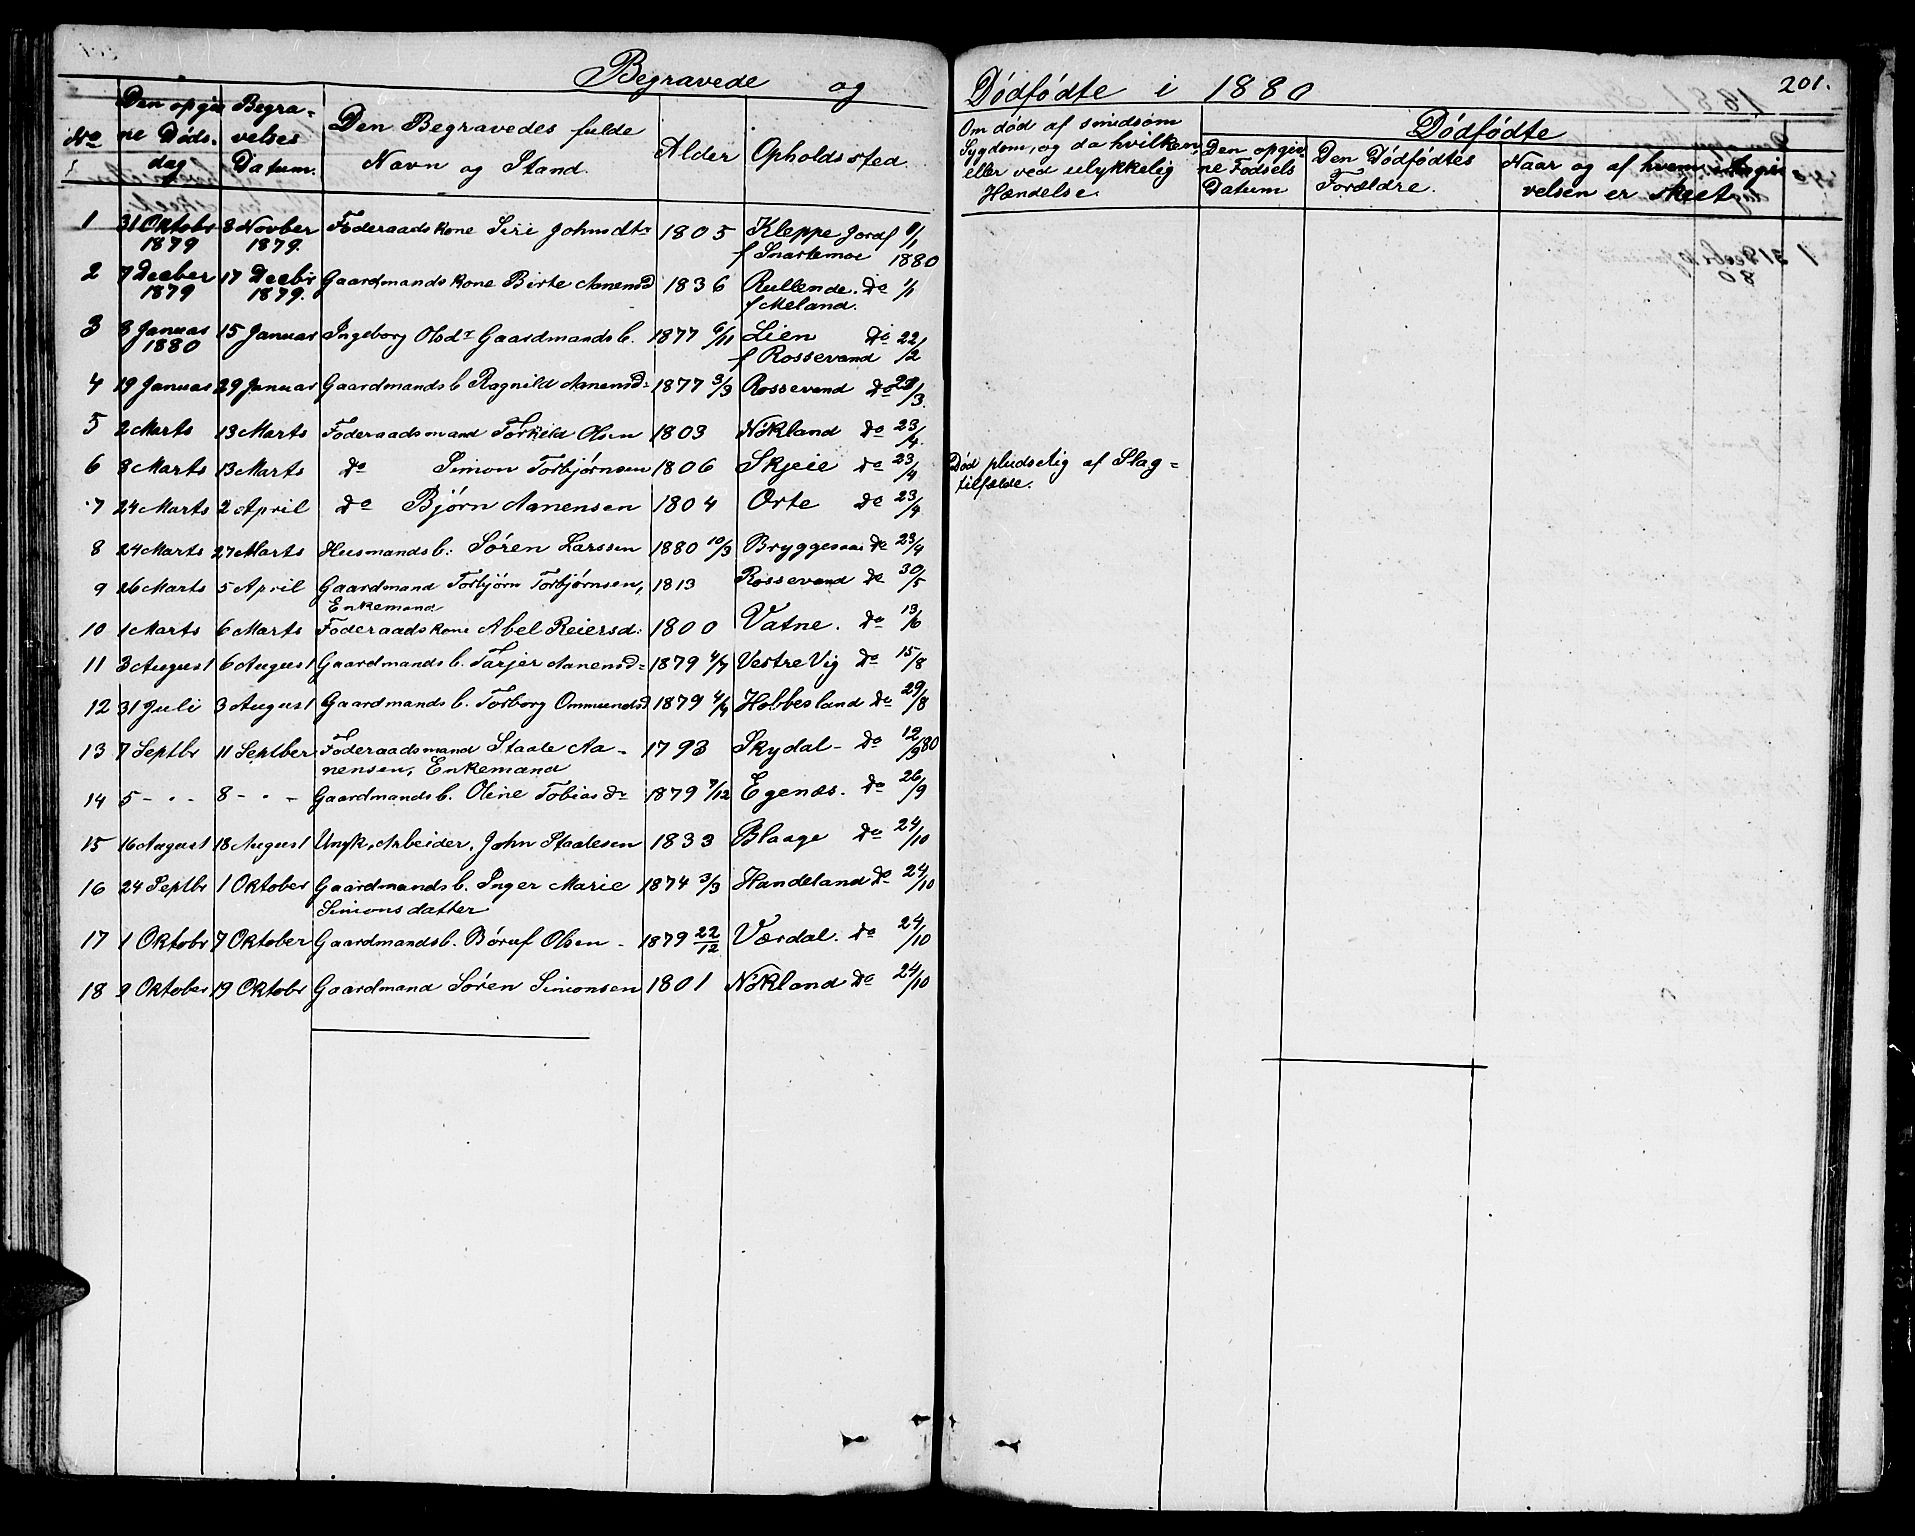 Begravede og Dódfódte i 1880 201.
No Den opgivne Dødsdag Begravelses Datum. Den Begravedes fulde Navn og Stand. Alder Opholdssted.
Om død af smidsom Sygdom, og da hvilken eller ved ulykkelig Hændelse.
Dódfódte
Den opgivne Fødsels Datum Den Dódfódtes Forældre. Naar og af hvem Angivelsen er skeet
1 31 Oktobr 1879 8 Novber 1879. Føderaadskone Siri Johnsdtr 1805 Kleppe Jordf f Snartemoe 1880
2 7 Decber 1879 17 Decbr 1879. Gaardmandskone Birte Aanensd 1836 Rullende. do 1/1
f Meland.
3 8 Januar 1880 15 Januar Ingeborg Olsdr Gaardmandsb. 1877 6/11 Lien do 22/2
f Rossevand
4 19 Januar 29 Januar Gaardmandsb Ragnild Aanensd: 1877 3/3 Rossevand do 29/3.
5 2 Marts 13 Marts Føderaadsmand Torkild Olsen 1803 Nökland do 23/4.
6 8 Marts 13 Marts do Simon Torbjørnsen 1806 Skjeie do 23/4 Død pludselig af Slag=
tilfælde.
7 24 Marts 2 April do Bjørn Aanensen 1804 Orte do 23/4
8 24 Marts 27 Marts Husmandsb: Sóren Larssen 1880 10/3 Bryggesaa do 23/4
9 26 Marts 5 April Gaardmand Torbjörn Torbjørnsen, 1813 Rossevand do 30/5
Enkemand
10 1 Marts 6 Marts Føderaadskone Abel Reiersd: 1800 Vatne. do 13/6
11 3 August 6 August Gaardmandsb. Tarjer Aanensd= 1879 4/7 Vestre Vig do 15/8
12 31 Juli 3 August Gaardmandsb. Torborg Ommundsd 1879 4/4 Hobbesland do 29/8
13 7 Septbr 11 Septber Føderaadsmand Staale Aa- 1793 Skydal- do 12/9 80
nensen, Enkemand
14 5 - " - 8 - " - Gaardmandsb. Oline Tobiasdr 1879 7/12 Egenæs. do 26/9
15 16 August 18 August Ungk. Arbeider. John Staalesen 1833 Blaage do 24/10
16 24 Septbr 1 Oktober Gaardmandsb. Inger Marie 1874 3/3 Handeland do 24/10
Simonsdatter
17 1 Oktobr 7 Oktober Gaardmandsb. Böruf Olsen - 1879 22/12 Værdal. do 24/10
18 9 Oktober 19 Oktobr Gaardmand Sóren Simonsen 1801 Nökland do 24/10